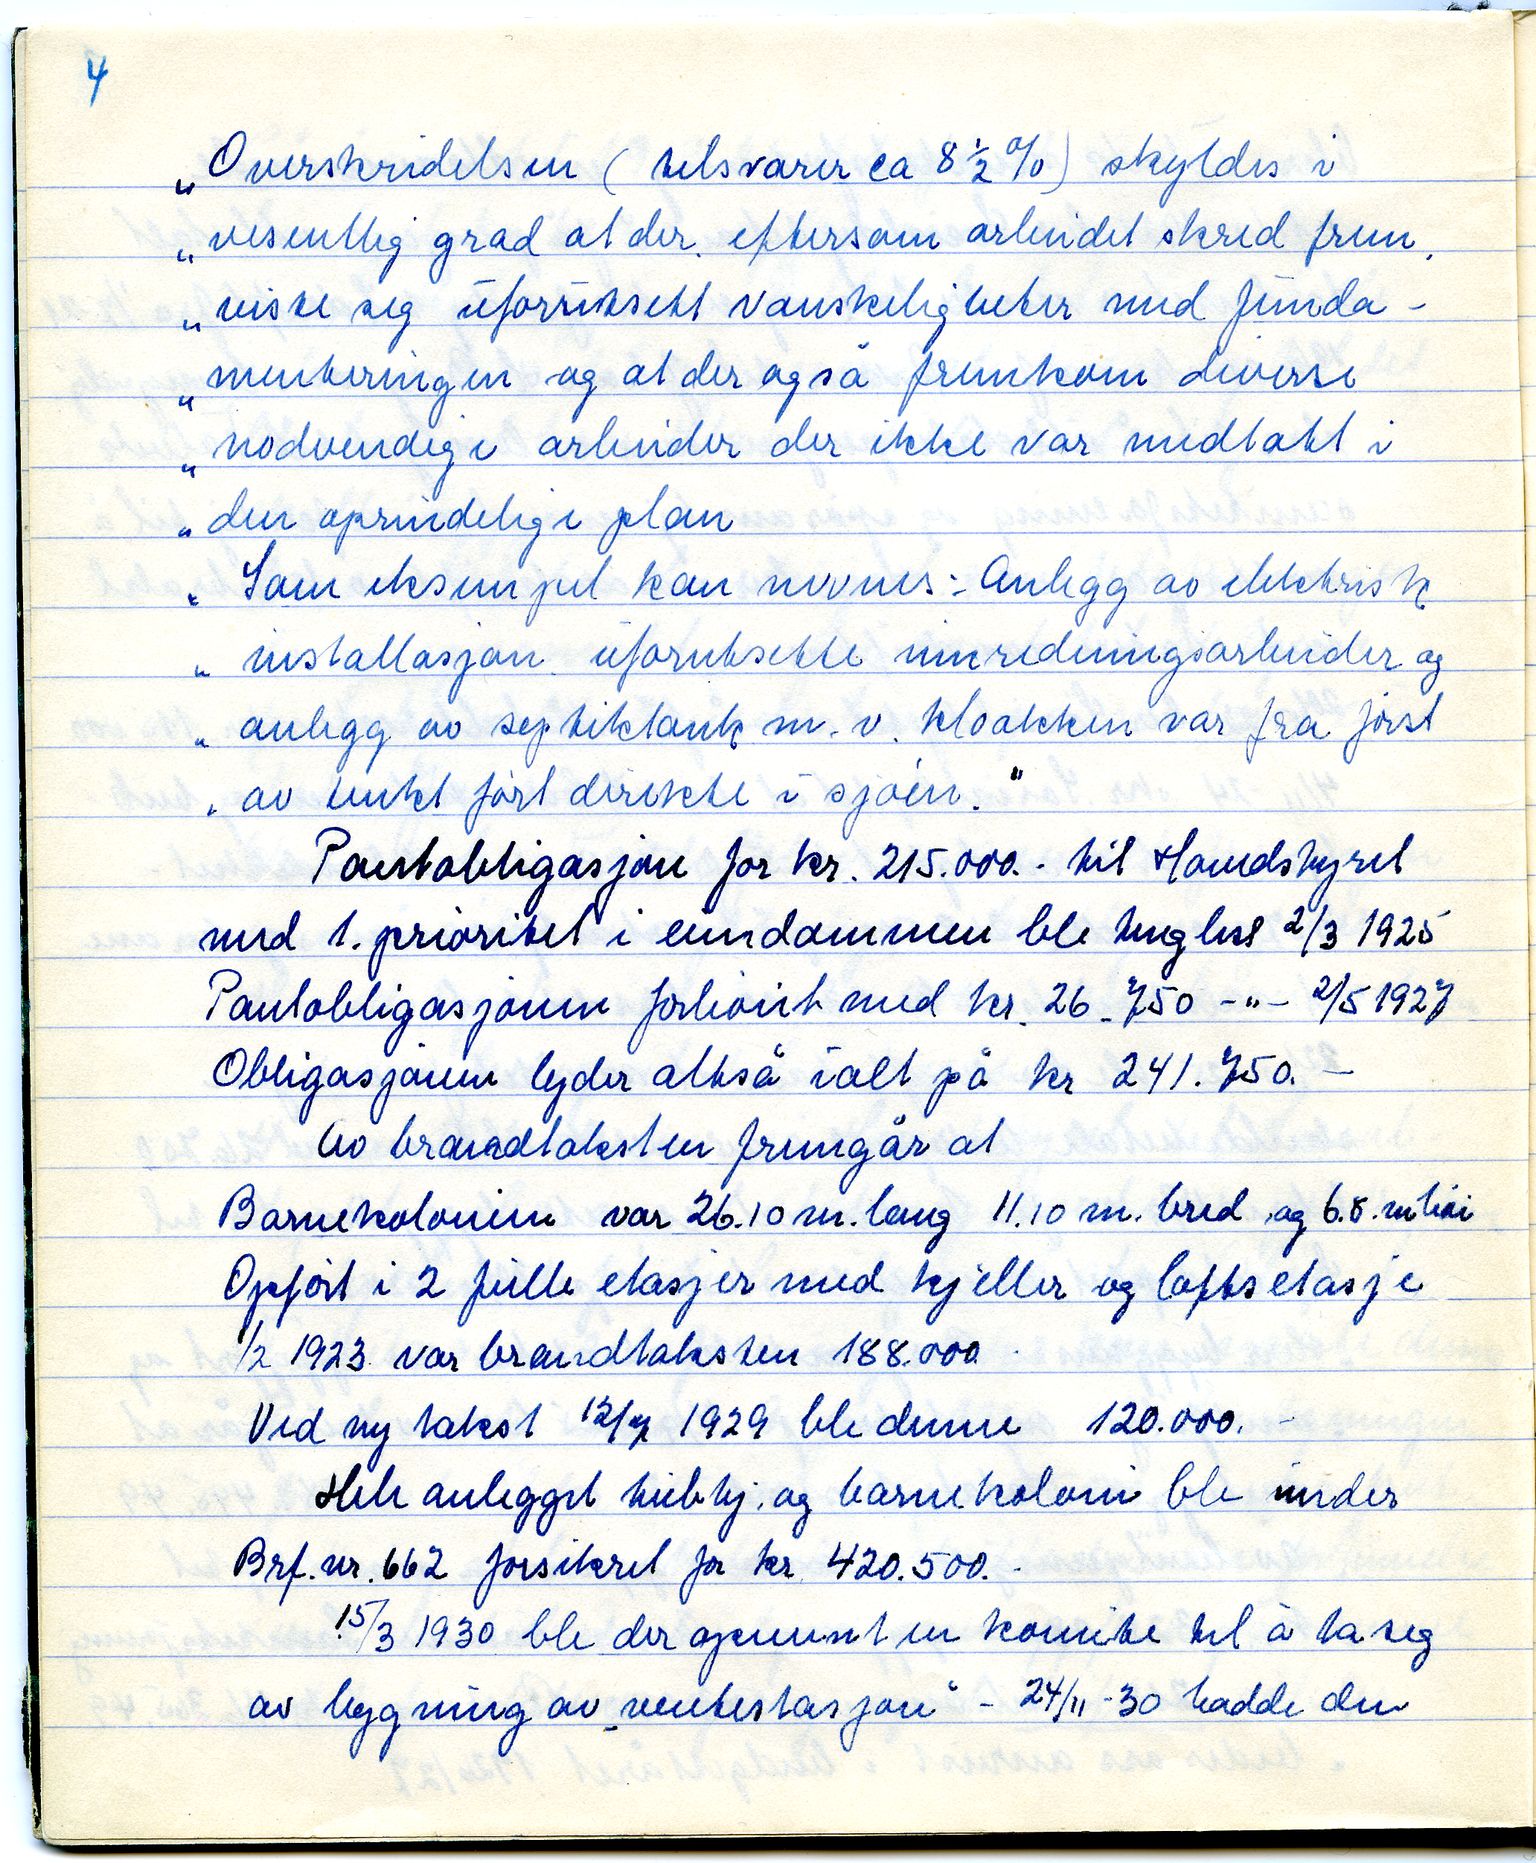 4
„Overskridelsen (tilsvarer ca 8½ %) skyldes i
„vesentlig grad at der, eftersom arbeidet skred frem,
„viste seg uforutsett vanskeligheter med funda-
„menteringen og at der også fremkom diverse
„nødvendige arbeider der ikke var medtatt i
„den oprindelige plan
„Som eksempel kan nevnes: Anlegg av elektrisk
„installasjon uforutsette innredningsarbeider og
„anlegg av septiktank m.v. kloakken var fra først
„av tenkt ført direkte i sjøen."
Pantobligasjon for kr. 215.000.- til Havedstyret
med 1. prioritet i eiendommen ble tinglest 2/3 1925
Pantobligasjonen forhøiet med kr. 26.750 -"- 2/5 1927
Obligasjonen lyder altså ialt på kr 241.750.-
Av brandtaksten fremgår at
Barnekolonien var 26.10 m. lang 11.10 m. bred og 6.8. m høi
Opført i 2 fulle etasjer med kjeller og loftsetasje
1/2 1923 var brandtaksten 188.000 -
Ved ny takst 12/7 1929 ble denne 120.000.-
Hele anlegget tub.hj. og barnekoloni ble under
Brf. nr. 662 forsikret for kr. 420.500.-
15/3 1930 ble der opnevnt en komite til å ta seg
av bygning av „ventestasjon" - 24/11-30 hadde den